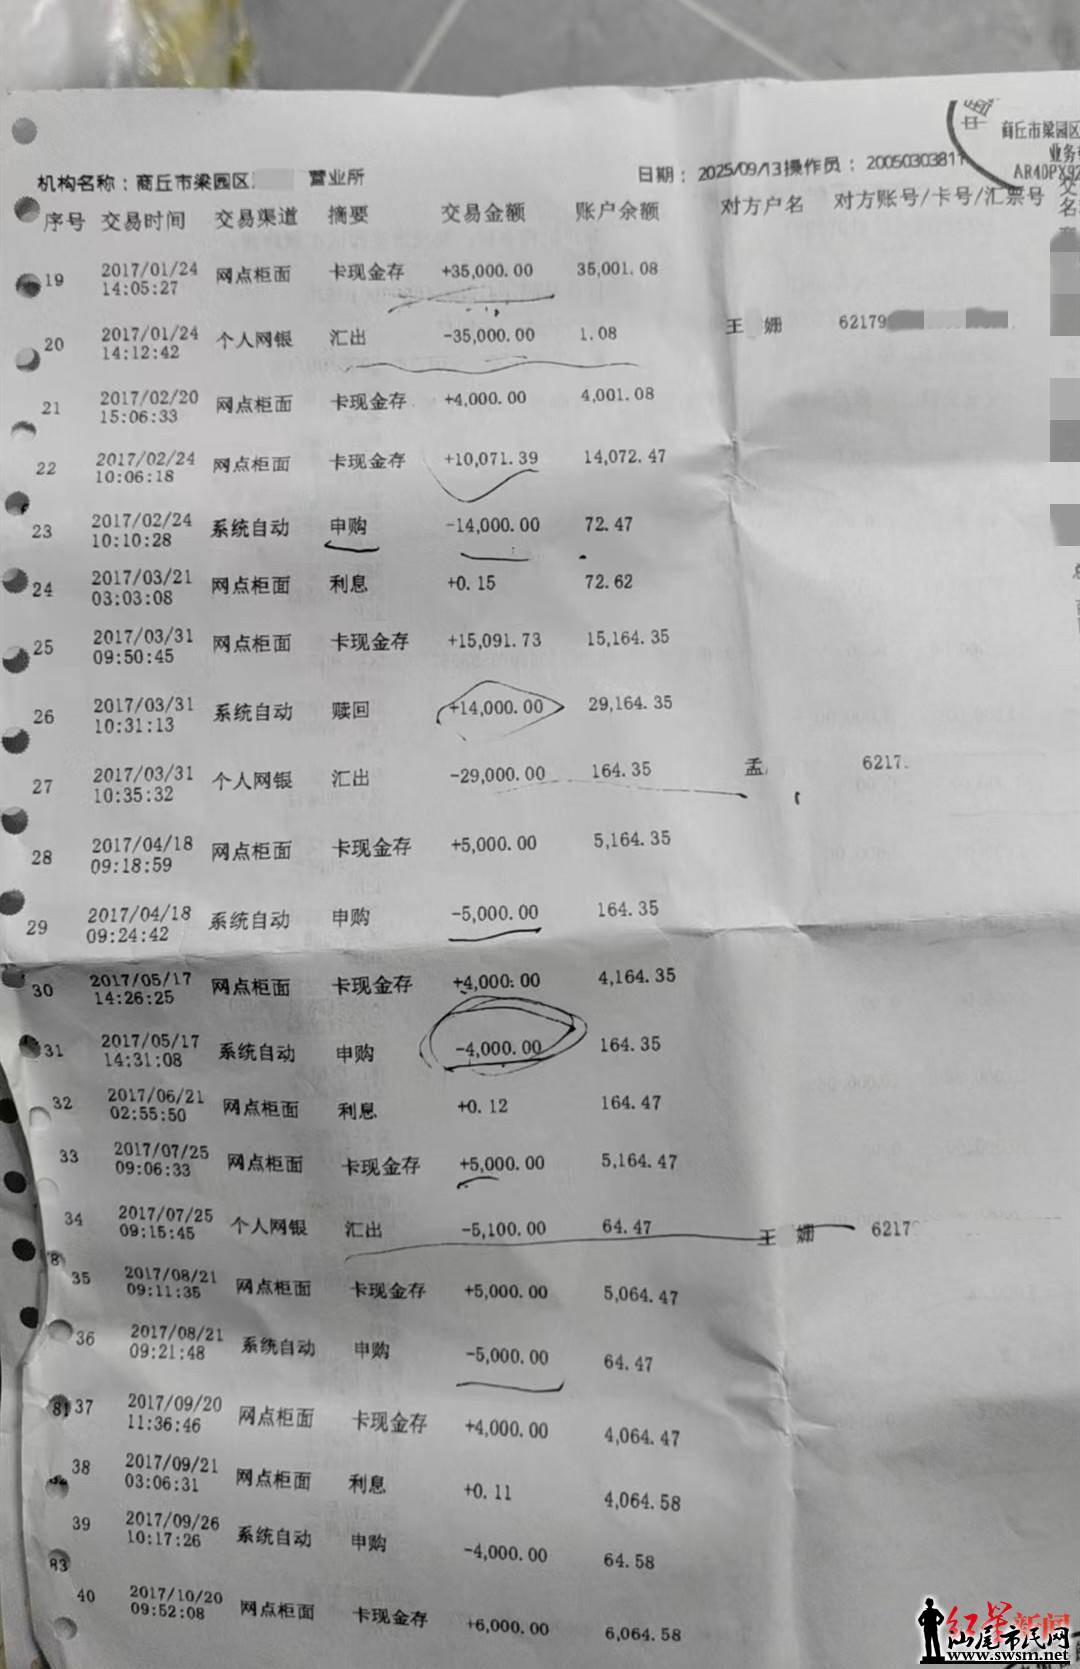 商丘市梁园区
业务
AR40PX92
机构名称：商丘市梁园区 营业所 日期：2025/09/13操作员：20050303811
序号 交易时间 交易渠道 摘要 交易金额 账户余额 对方户名 对方账号/卡号/汇票号
19 2017/01/24 14:05:27 网点柜面 卡现金存 +35,000.00 35,001.08
20 2017/01/24 14:12:42 个人网银 汇出 -35,000.00 1.08 王 姗 62179
21 2017/02/20 15:06:33 网点柜面 卡现金存 +4,000.00 4,001.08
22 2017/02/24 10:06:18 网点柜面 卡现金存 +10,071.39 14,072.47
23 2017/02/24 10:10:28 系统自动 申购 -14,000.00 72.47
24 2017/03/21 03:03:08 网点柜面 利息 +0.15 72.62
25 2017/03/31 09:50:45 网点柜面 卡现金存 +15,091.73 15,164.35
26 2017/03/31 10:31:13 系统自动 赎回 +14,000.00 29,164.35
27 2017/03/31 10:35:32 个人网银 汇出 -29,000.00 164.35 孟 6217
28 2017/04/18 09:18:59 网点柜面 卡现金存 +5,000.00 5,164.35
29 2017/04/18 09:24:42 系统自动 申购 -5,000.00 164.35
30 2017/05/17 14:26:25 网点柜面 卡现金存 +4,000.00 4,164.35
31 2017/05/17 14:31:08 系统自动 申购 -4,000.00 164.35
32 2017/06/21 02:55:50 网点柜面 利息 +0.12 164.47
33 2017/07/25 09:06:33 网点柜面 卡现金存 +5,000.00 5,164.47
34 2017/07/25 09:15:45 个人网银 汇出 -5,100.00 64.47 王 姗 6217
35 2017/08/21 09:11:35 网点柜面 卡现金存 +5,000.00 5,064.47
36 2017/08/21 09:21:48 系统自动 申购 -5,000.00 64.47
81 37 2017/09/20 11:36:46 网点柜面 卡现金存 +4,000.00 4,064.47
38 2017/09/21 03:06:31 网点柜面 利息 +0.11 4,064.58
39 2017/09/26 10:17:26 系统自动 申购 -4,000.00 64.58
83
40 2017/10/20 09:52:08 网点柜面 卡现金存 +6,000.00 6,064.58
红星新闻
汕尾市民网
www.swsm.net